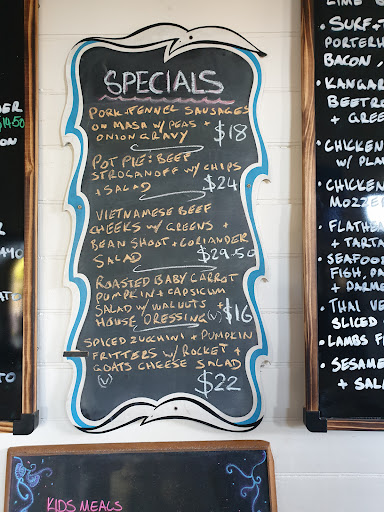 SPECIALS
PORK-FENNEL SAUSAGES
ON MASH W/ PEAS +
ONION GRAVY $18
POT PIE: BEEF
STROGANOFF W/ CHIPS
+ SALAD $24
VIETNAMESE BEEF
CHEEKS W/ GREENS +
BEAN SHOOT + CORIANDER
SALAD $29.50
ROASTED BABY CARROT
PUMPKIN + CAPSICUM
SALAD W/ WALNUTS +
HOUSE DRESSING (V) $16
SPICED ZUCCHINI + PUMPKIN
FRITTERS W/ ROCKET +
GOATS CHEESE SALAD
(V) $22
KIDS MEALS
$14.50
SURF +
PORTERH
BACON,
• KANGAR
BEETRO
+ GREE
• CHICKEN
W/ PLA
• CHICKEN
MOZZER
• FLATHEA
+ TARTA
• SEAFOOD
FISH, PR
+ PARME
• THAI VE
SLICED
• LAMBS F
• SESAME
+ SALA